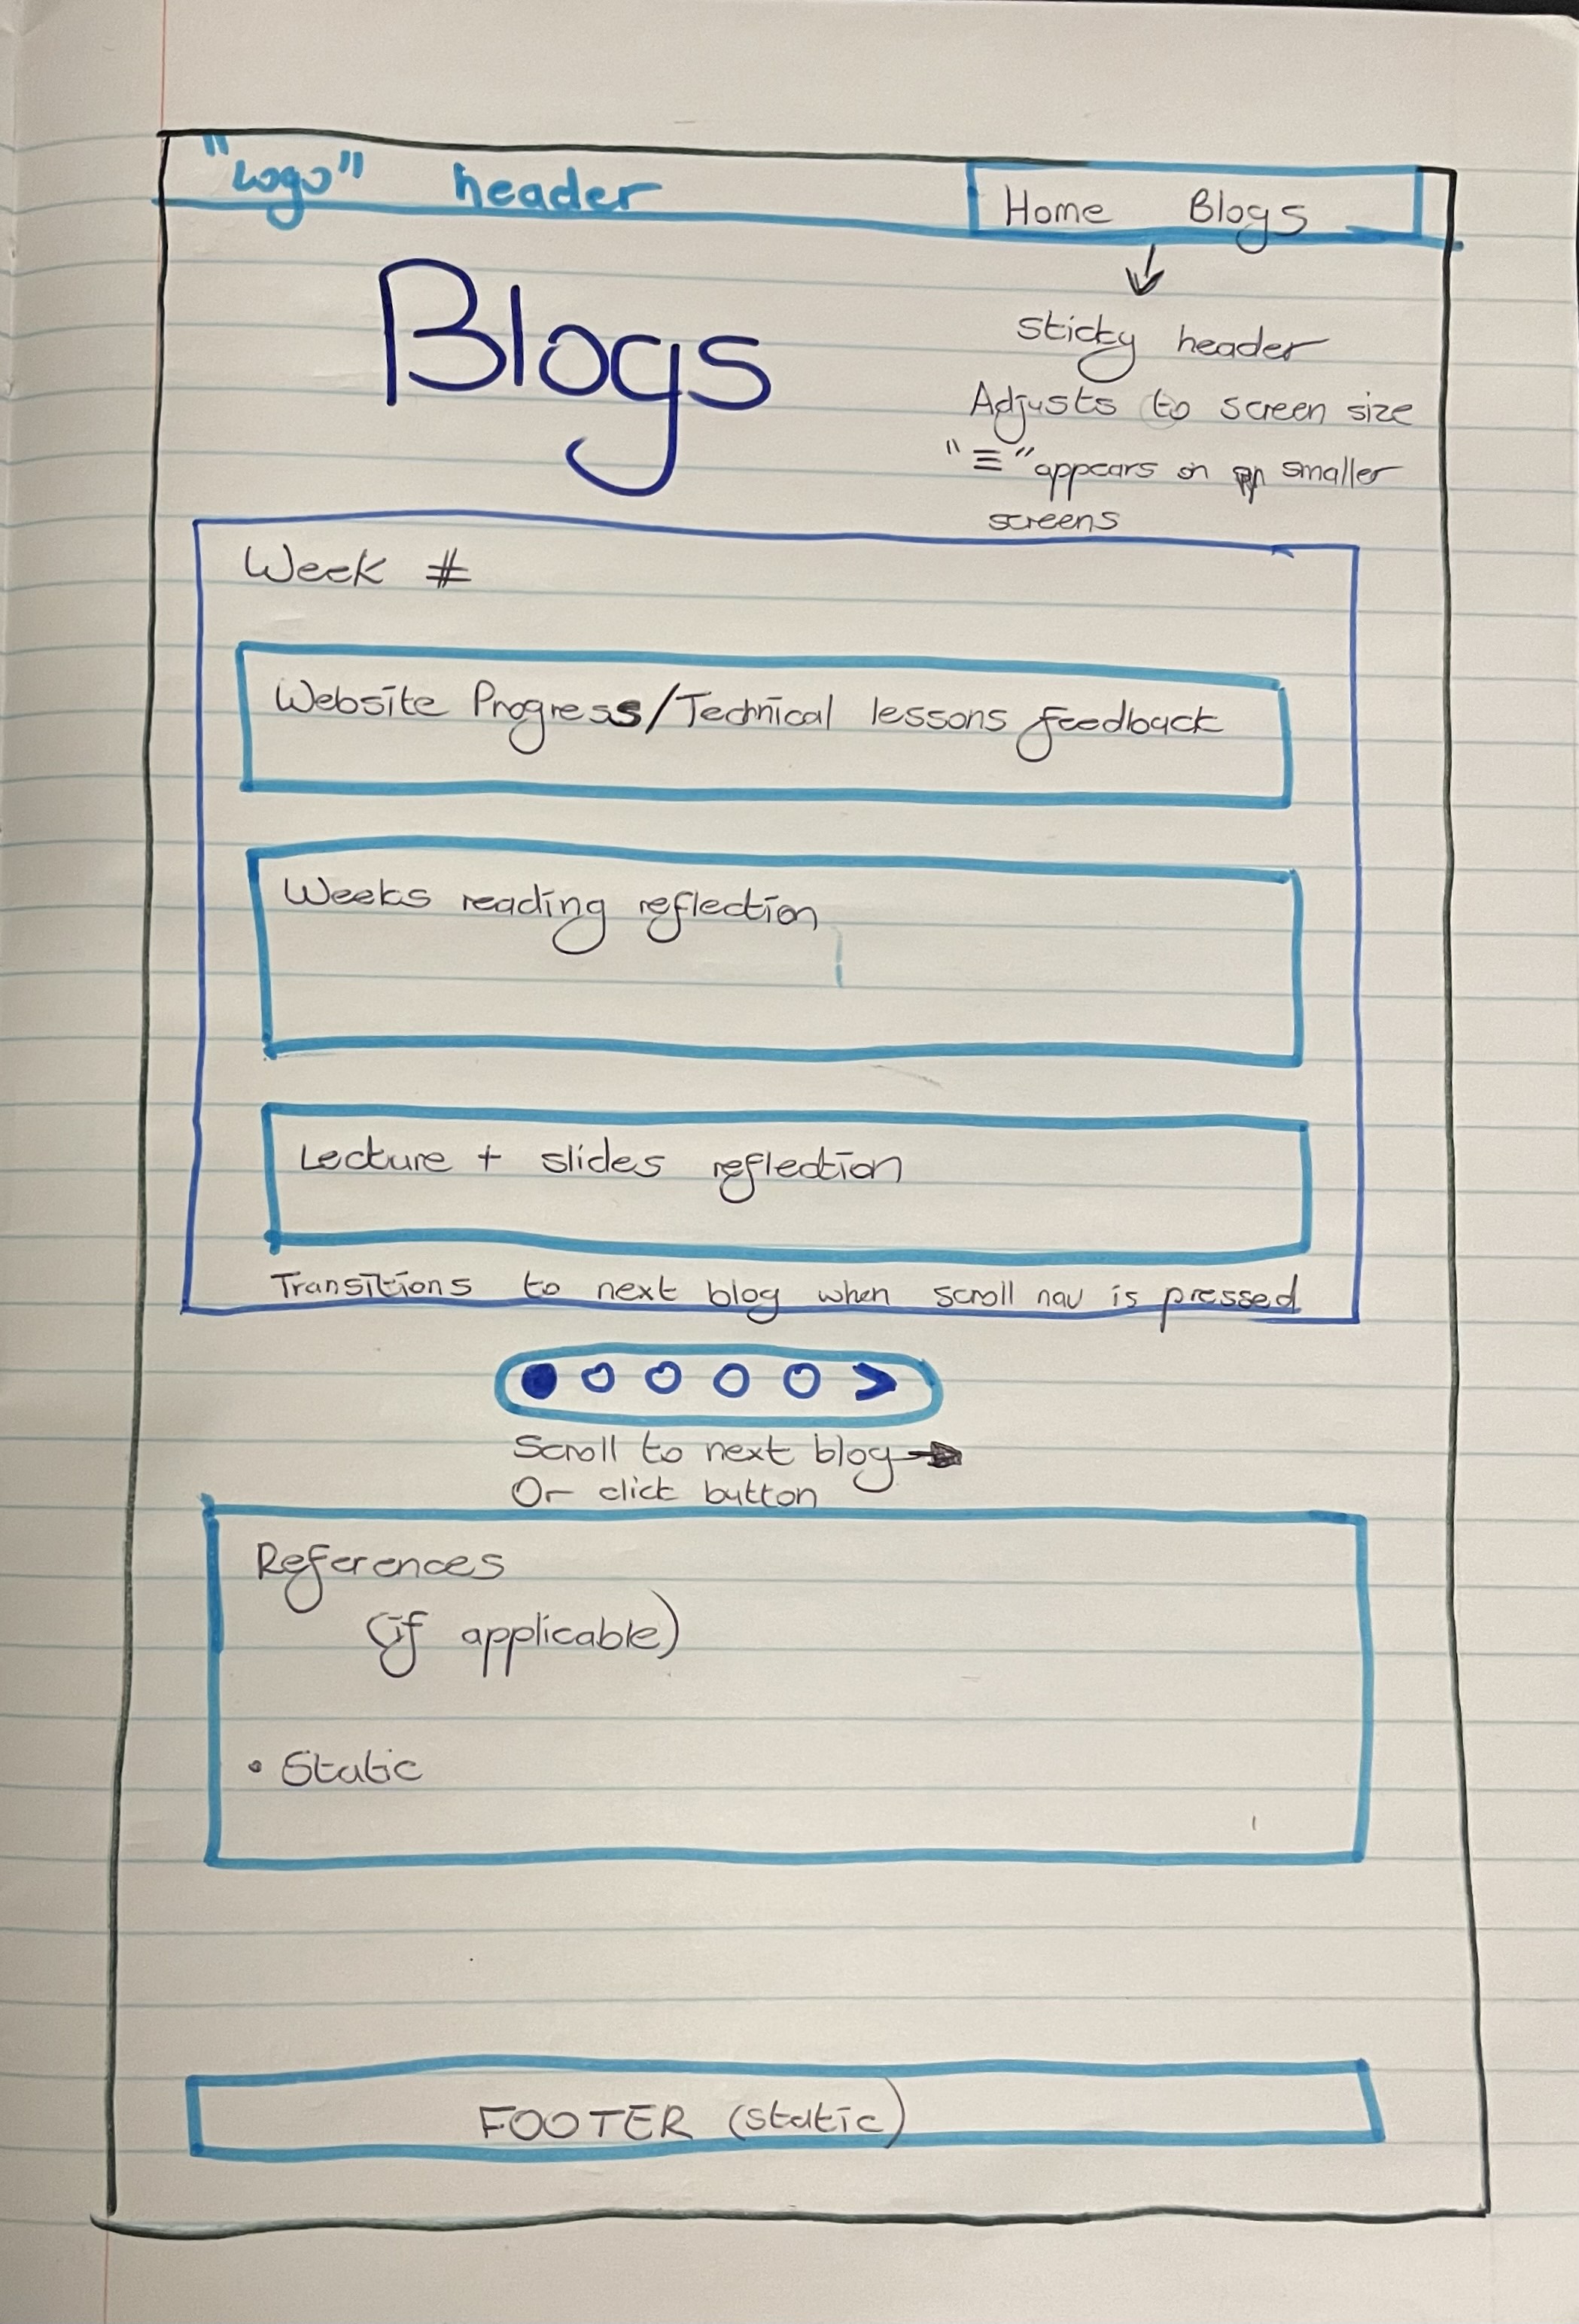 "Logo" header
Home Blogs
Blogs
sticky header
Adjusts to screen size
"≡" appears on smaller
screens
Week #
Website Progress/Technical lessons feedback
Weeks reading reflection
Lecture + slides reflection
Transitions to next blog when scroll nav is pressed
>
Scroll to next blog →
Or click button
References
(if applicable)
• Static
FOOTER (static)